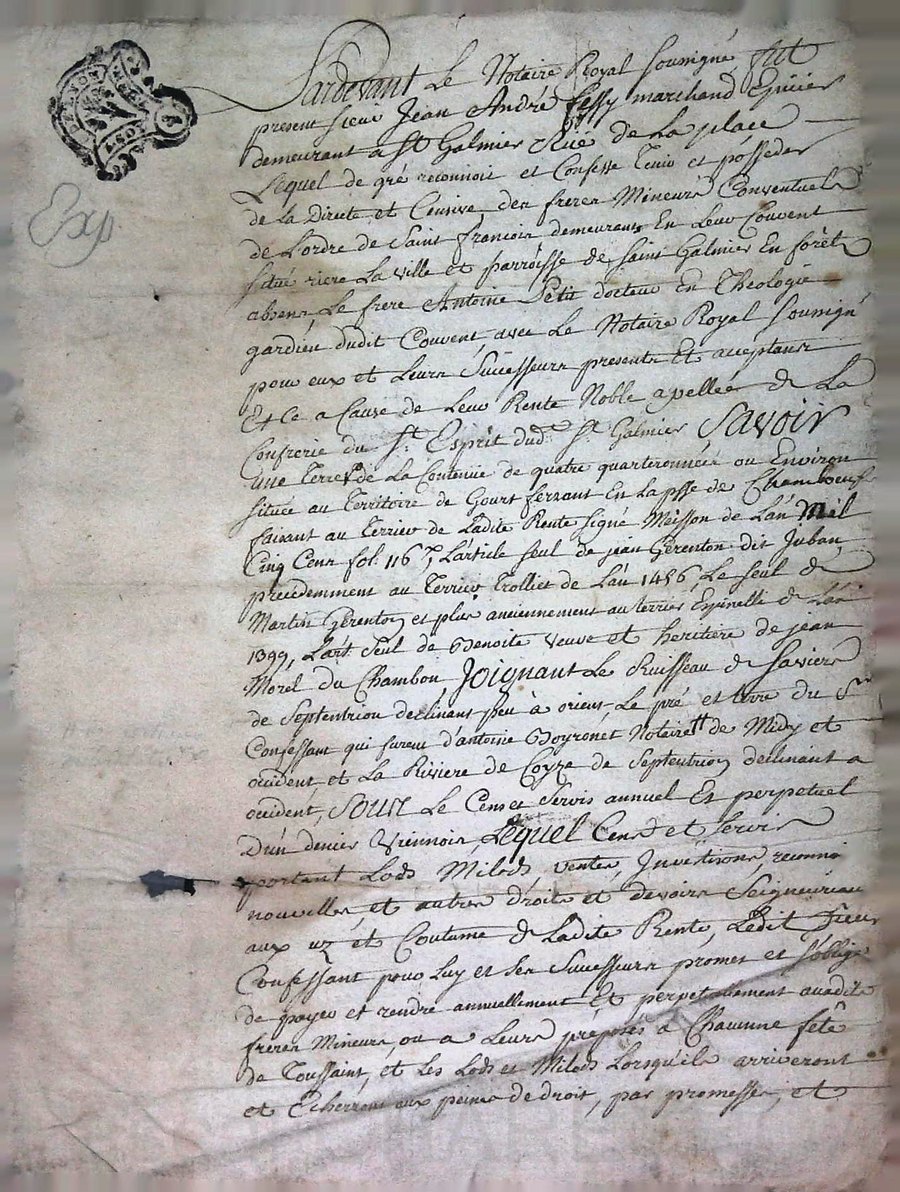 Exp
Pardevant Le Notaire Royal Soussigné fut
present sieur Jean André fessy marchand Epicier
demeurant a St Galmier Rue de La place
Lequel de gré reconnoit et Confesse Tenir et posseder
de La Directe et Censive des freres Mineurs Conventuels
de Lordre de Saint françois demeurans En Leur Couvent
situé riere La ville et parroisse de saint Galmier En forêt
absens, Le frere Antoine Petit docteur En Theologie
gardien dudit Couvent avec Le Notaire Royal soussigné
pour eux et Leurs Successeurs presents Et acceptans
Et Ce a Cause de Leur Rente Noble apellée de La
Confrerie du St Esprit dud. St Galmier Savoir
une Terre de La Contenue de quatre quarteronnées ou Environ
située au Territoire de Gourt ferrant En La psse de Chambœuf
faisant au Terrier de Ladite Rente signé Meisson de Lan Mil
Cinq Cens fol. 116, L'article seul de jean Gérenton dit Juban,
precedemment au Terrier Trolliet de Lan 1456, Le seul de
Martin Gérenton et plus anciennement au terrier Espinelli de Lan
1399, L'art. seul de Benoite veuve et heritiere de jean
Morel du Chambon Joignant Le Ruisseau de
de Septentrion declinans peu à orient, Le pré et terre du Sr
Confessant qui furent d'antoine Boyronet Notaire de Midy et
occident, et La Riviere de Coyze de Septentrion declinant a
occident, Sous Le Cens et Servis annuel Et perpetuel
D'un denier Viennois Lequel Cens et Servis
portant Lods Milods, ventes, Investisons, reconnoi
nouvelles, et autres droits et devoirs Seigneuriau
aux uz et Coutume de Ladite Rente, Ledit sieur
Confessant pour Luy et ses Successeurs promet et s'oblige
de payer et rendre annuellement Et perpetuellement auxdits
freres Mineurs, ou a Leurs préposés à Chacune fête
de Toussaint, et Les Lods et Milods Lorsqu'ils arriveront
et Echerront aux peines de droit, par promesses, et